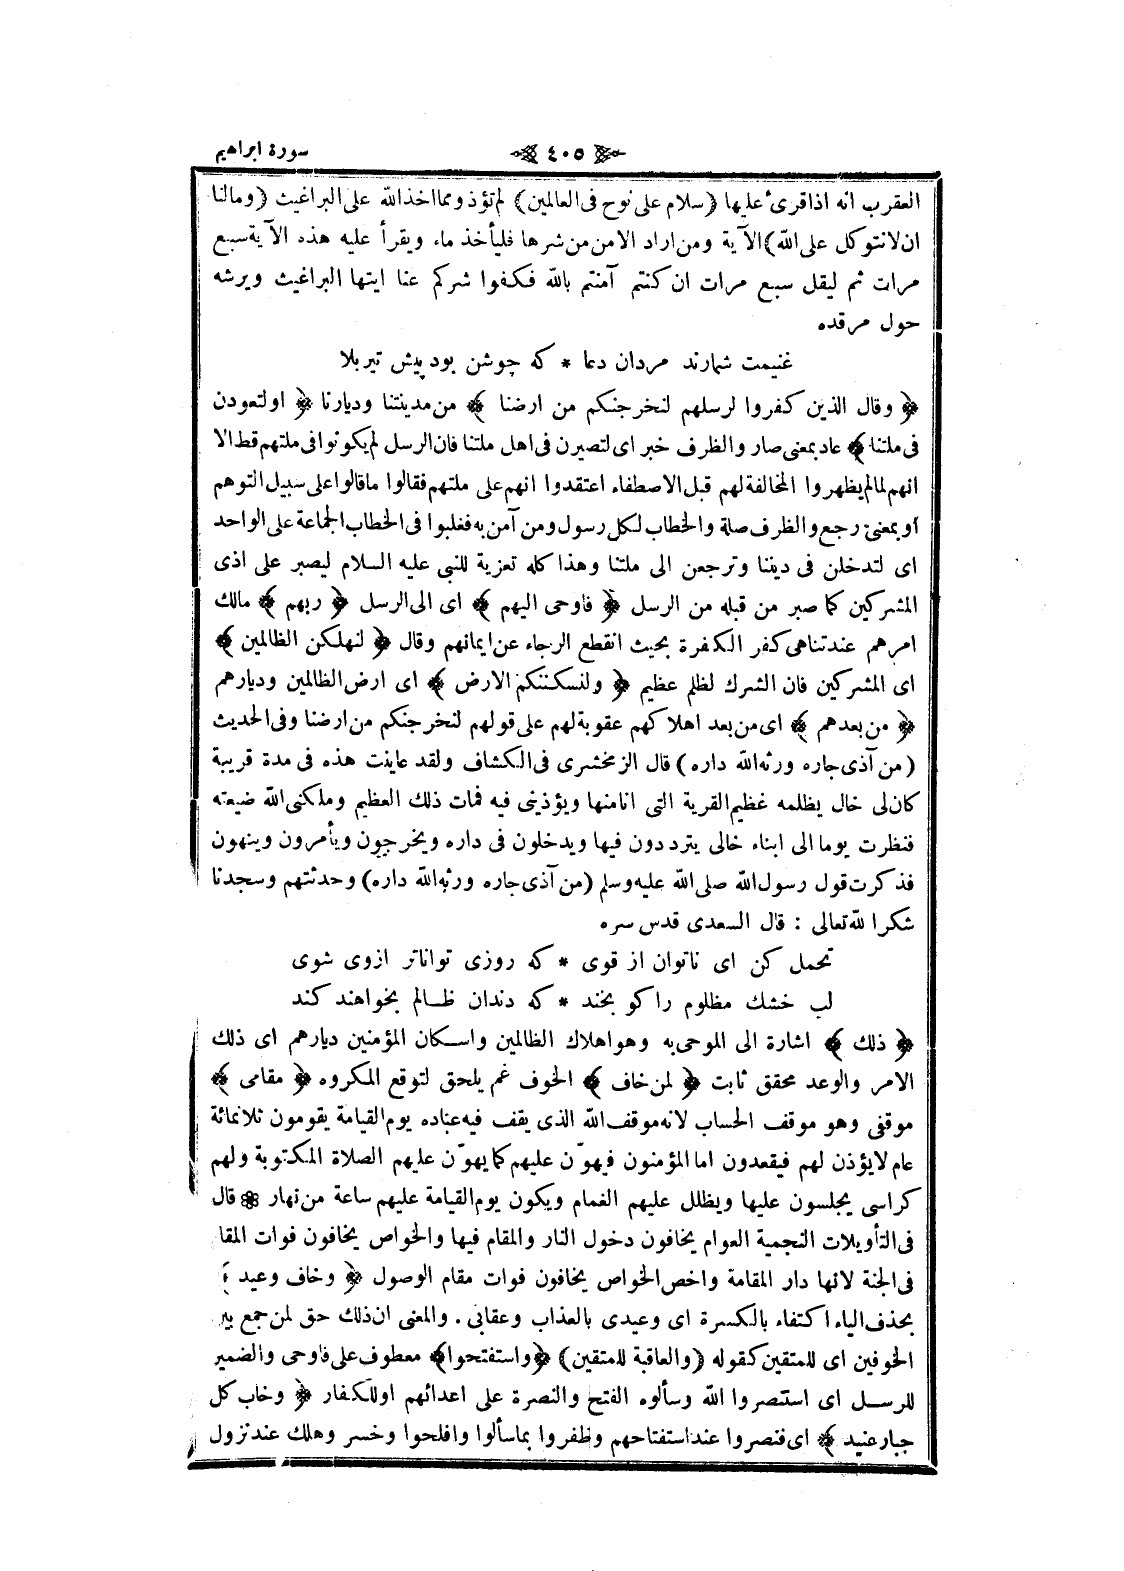 سورة ابراهيم
٤٠٥
العقرب انه اذا قرئ عليها (سلام على نوح فى العالمين) لم تؤذ ومما اخذ الله على البراغيث (ومالنا
ان لانتوكل على الله) الآية ومن اراد الامن من شرها فليأخذ ماء ويقرأ عليه هذه الآية سبع
مرات ثم ليقل سبع مرات ان كنتم آمنتم بالله فكفوا شركم عنا ايتها البراغيث ويرشه
حول مرقده
غنيمت شمارند مردان دعا * كه جوشن بود پيش تير بلا
﴿ وقال الذين كفروا لرسلهم لنخرجنكم من ارضنا ﴾ من مدينتنا وديارنا ﴿ او لتعودن
فى ملتنا ﴾ عاد بمعنى صار والظرف خبر اى لتصيرن فى اهل ملتنا فان الرسل لم يكونوا فى ملتهم قط الا
انهم لما لم يظهروا المخالفة لهم قبل الاصطفاء اعتقدوا انهم على ملتهم فقالوا ما قالوا على سبيل التوهم
او بمعنى رجع والظرف صلة والخطاب لكل رسول ومن آمن به فغلبوا فى الخطاب الجماعة على الواحد
اى لتدخلن فى ديننا وترجعن الى ملتنا وهذا كله تعزية للنبى عليه السلام ليصبر على اذى
المشركين كما صبر من قبله من الرسل ﴿ فاوحى اليهم ﴾ اى الى الرسل ﴿ ربهم ﴾ مالك
امرهم عند تناهى كفر الكفرة بحيث انقطع الرجاء عن ايمانهم وقال ﴿ لنهلكن الظالمين ﴾
اى المشركين فان الشرك لظلم عظيم ﴿ ولنسكننكم الارض ﴾ اى ارض الظالمين وديارهم
﴿ من بعدهم ﴾ اى من بعد اهلاكهم عقوبة لهم على قولهم لنخرجنكم من ارضنا وفى الحديث
(من آذى جاره ورثه الله داره) قال الزمخشرى فى الكشاف ولقد عاينت هذه فى مدة قريبة
كان لى خال يظلمه عظيم القرية التى انا منها ويؤذينى فيه فمات ذلك العظيم وملكنى الله ضيعته
فنظرت يوما الى ابناء خالى يترددون فيها ويدخلون فى داره ويخرجون ويأمرون وينهون
فذكرت قول رسول الله صلى الله عليه وسلم (من آذى جاره ورثه الله داره) وحدثتهم وسجدنا
شكرا لله تعالى : قال السعدى قدس سره
تحمل كن اى ناتوان از قوى * كه روزى تواناتر ازوى شوى
لب خشك مظلوم را كو بخند * كه دندان ظالم بخواهند كند
﴿ ذلك ﴾ اشارة الى الموحى به وهو اهلاك الظالمين واسكان المؤمنين ديارهم اى ذلك
الامر والوعد محقق ثابت ﴿ لمن خاف ﴾ الخوف غم يلحق لتوقع المكروه ﴿ مقامى ﴾
موقفى وهو موقف الحساب لانه موقف الله الذى يقف فيه عباده يوم القيامة يقومون ثلاثمائة
عام لايؤذن لهم فيقعدون اما المؤمنون فيهوّن عليهم كما يهوّن عليهم الصلاة المكتوبة ولهم
كراسى يجلسون عليها ويظلل عليهم الغمام ويكون يوم القيامة عليهم ساعة من نهار ❁ قال
فى التأويلات النجمية العوام يخافون دخول النار والمقام فيها والخواص يخافون فوات المقا
فى الجنة لانها دار المقامة واخص الخواص يخافون فوات مقام الوصول ﴿ وخاف وعيد ﴾
بحذف الياء اكتفاء بالكسرة اى وعيدى بالعذاب وعقابى . والمعنى ان ذلك حق لمن جمع بين
الخوفين اى للمتقين كقوله (والعاقبة للمتقين) ﴿واستفتحوا﴾ معطوف على فاوحى والضمير
للرسل اى استنصروا الله وسألوه الفتح والنصرة على اعدائهم او للكفار ﴿ وخاب كل
جبار عنيد ﴾ اى فنصروا عند استفتاحهم وظفروا بما سألوا وافلحوا وخسر وهلك عند نزول